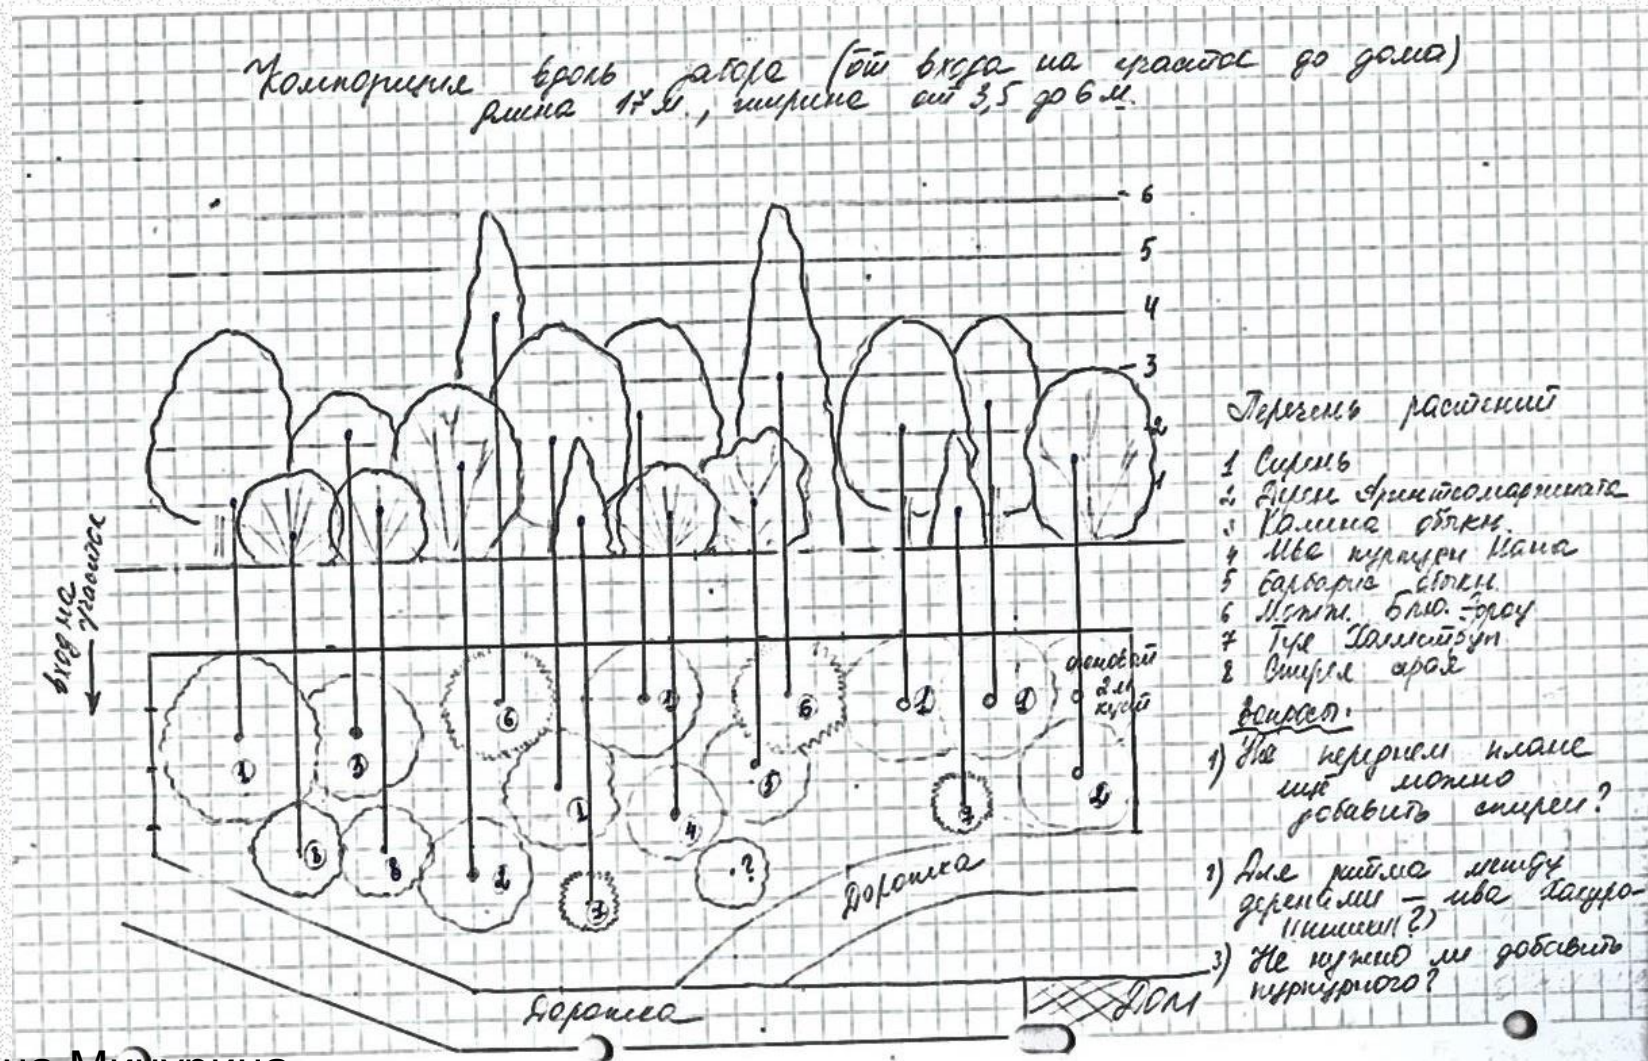 Композиция вдоль забора (от входа на участок до дома)
длина 17 м., ширина от 3,5 до 6 м.
6
5
4
3
2
1
Перечень растений
1 Сирень
2 Дерен Аргентеомаргината
3 Калина обыкн.
4 Ива пурпурн Нана
5 Барбарис обыкн.
6 Можж. Блю. Эроу
7 Туя Холмструп
8 Спирея
Вопросы:
1) На переднем плане
ещё можно
добавить спиреи?
2) Для ритма между
деренами – ива Хакуро-
нишики (?)
3) Не нужно ли добавить
пурпурного?
вход на
участок
фоновой
2 м
куст
1
3
6
1
6
1
1
5
1
4
7
2
8
8
2
7
?
Дорожка
Дорожка
Дом